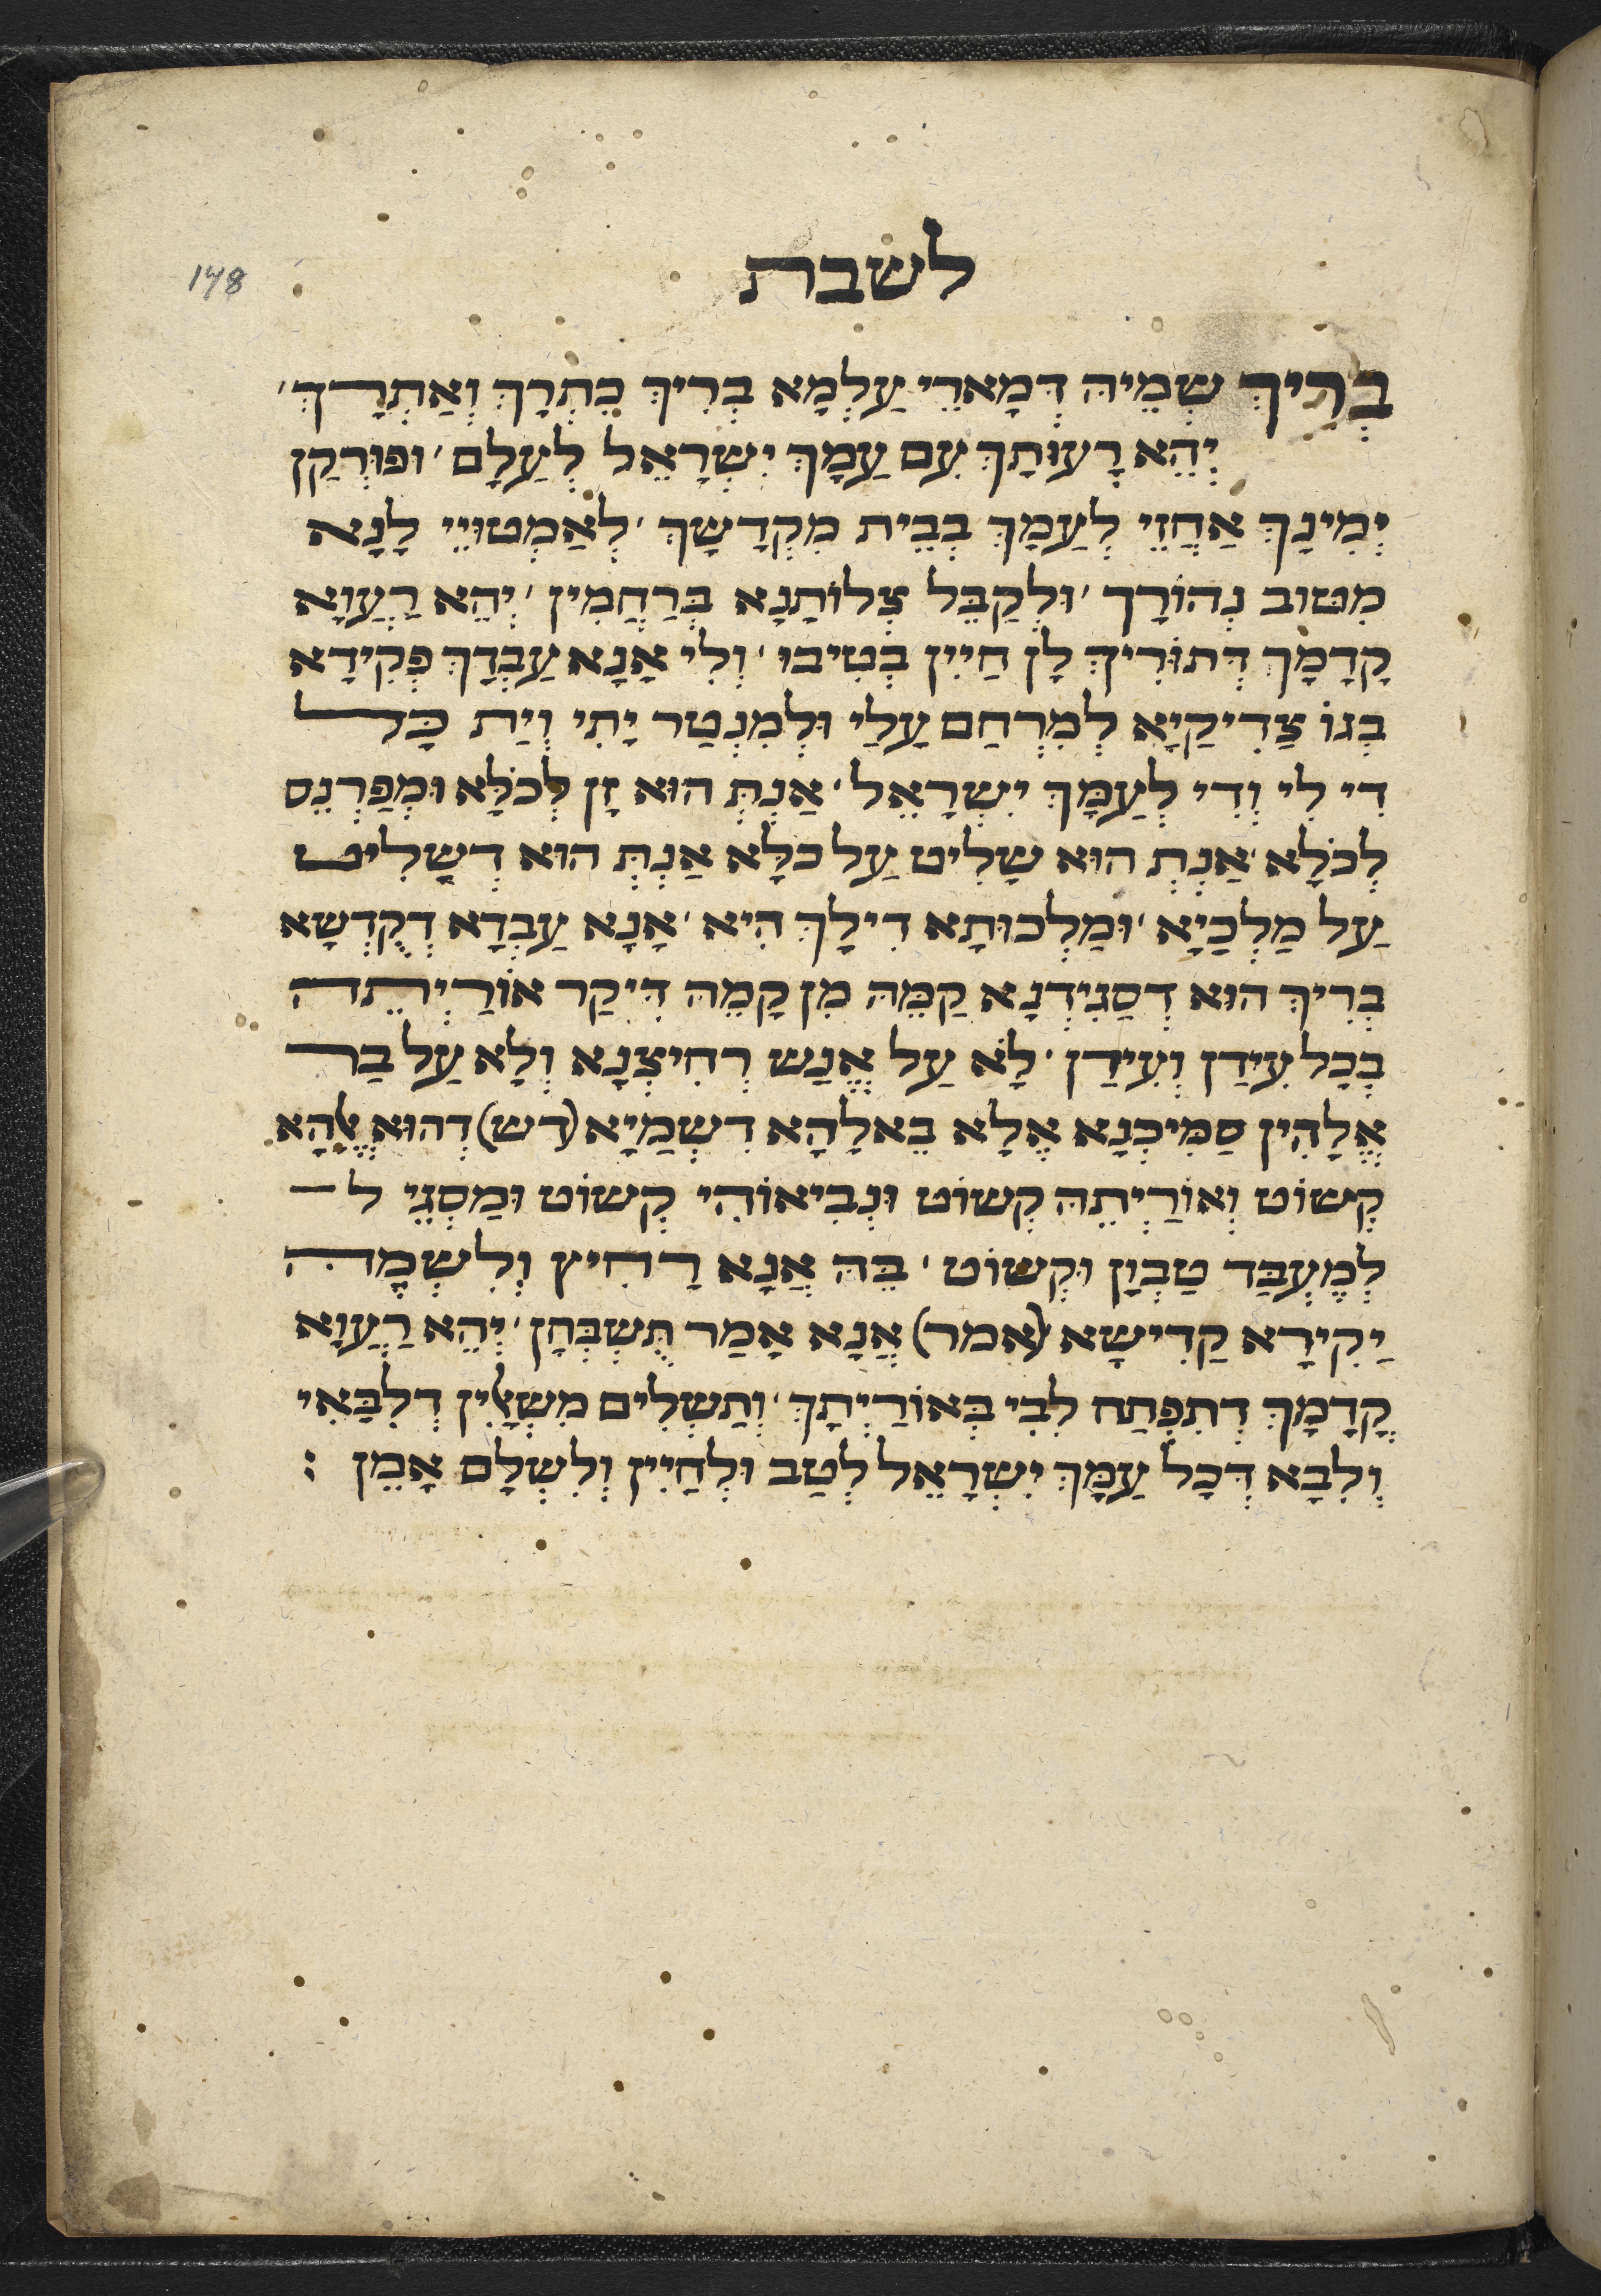 לשבת
148
בְרִיךְ שְמֵיהּ דְמָארֵי עַלְמָא בְרִיךְ כִתְרָךְ וְאַתְרָךְ׳
יְהֵא רְעוּתָךְ עִם עַמָךְ יִשְרָאֵל לְעַלַם׳ וּפוּרְקַן
יְמִינָךְ אַחֲזֵי לְעַמָךְ בְבֵית מִקְדָשָךְ׳ לְאַמְטוּיֵי לָנָא
מִטוּב נְהוֹרָך׳ וּלְקַבֵּל צְלוֹתָנָא בְּרַחֲמִין׳ יְהֵא רַעֲוָא
קָדָמָךְ דְתוֹרִיךְ לָן חַיִין בְטִיבוּ׳ וְלִי אֲנָא עַבְדָךְ פְקִידָא
בְגוֹ צַדִיקַיָא לְמִרְחַם עֲלַי וּלְמִנְטַר יָתִי וְיַת כָּל
דִי לִי וְדִי לְעַמָּךְ יִשְרָאֵל׳ אַנְתְּ הוּא זָן לְכֹלָּא וּמְפַרְנֵס
לְכֹלָא׳ אַנְתְ הוּא שָלִיט עַל כֹלָּא אַנְתְּ הוּא דְשָלִיט
עַל מַלְכַיָא׳ וּמַלְכוּתָא דִילָךְ הִיא׳ אֲנָא עַבְדָא דְקֻדְשָא
בְרִיךְ הוּא דְסַגִידְנָא קַמֵּהּ מִן קָמֵהּ דִיקַר אוֹרַיְתֵה
בְכָל עִידַן וְעִידַן׳ לָא עַל אֱנַש רְחִיצְנָא וְלָא עַל בַר
אֱלָהִין סַמִיכְנָא אֶלָא בֵאלָהָא דִשְמַיָא (דש) דְהוּא אֱלָהָא
קְשוֹט וְאוֹרַיְתֵהּ קְשוֹט וּנְבִיאוֹהִי קְשוֹט וּמַסְגֵי ל
לְמֶעְבַּד טַבְוָן וּקְשוֹט׳ בֵּהּ אֲנָא רָחִיץ וְלִשְמֵה
יַקִירָא קַדִישָא (אמר) אֲנָא אֵמַר תֻּשְבְּחָן׳ יְהֵא רַעֲוָא
קֳדָמָךְ דְתִפְתַּח לִבִּי בְּאוֹרַיְתָךְ׳ וְתַשְלִים מִשְאֲלִין דְלִבַּאִי
וְלִבָא דְּכָל עַמָּךְ יִשְרָאֵל לְטַב וּלְחַיִין וְלִשְלָם אָמֵן :